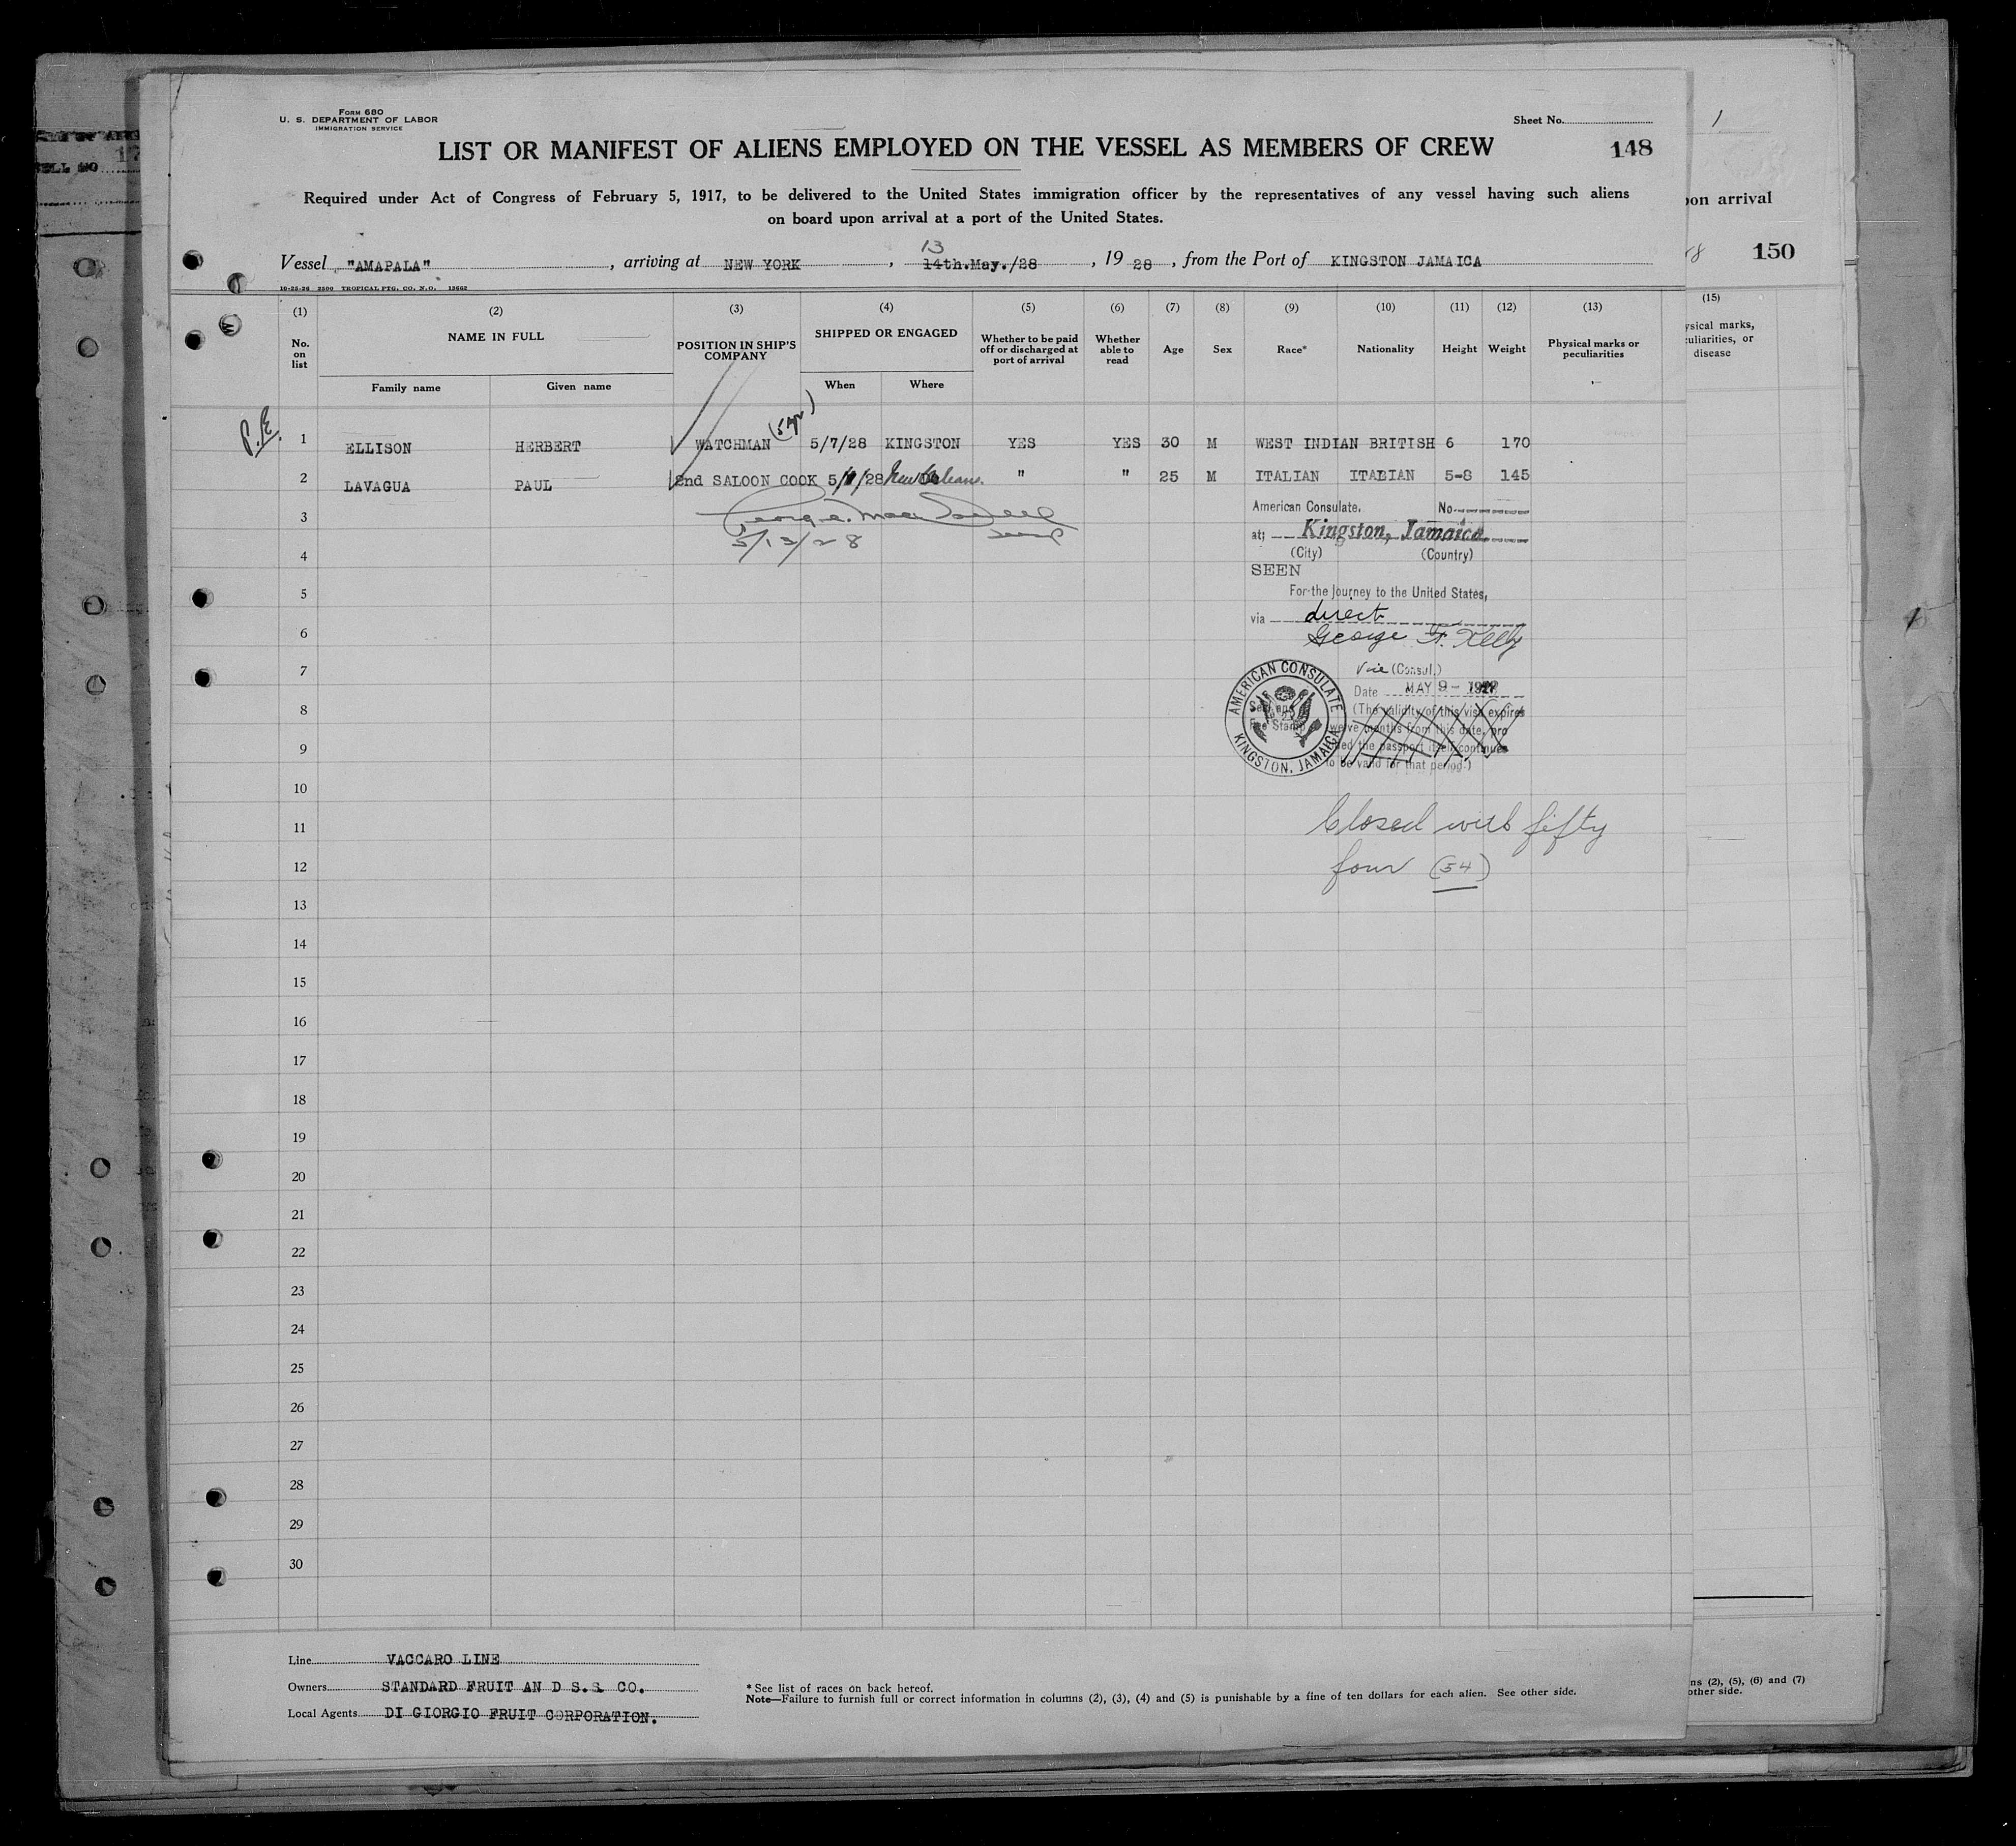 Form 680
U. S. DEPARTMENT OF LABOR
IMMIGRATION SERVICE
Sheet No.
LIST OR MANIFEST OF ALIENS EMPLOYED ON THE VESSEL AS MEMBERS OF CREW
148
Required under Act of Congress of February 5, 1917, to be delivered to the United States immigration officer by the representatives of any vessel having such aliens
on board upon arrival at a port of the United States.
13
Vessel "AMAPALA", arriving at NEW YORK, 14th.May./28, 1928, from the Port of KINGSTON JAMAICA
10-25-26 2500 TROPICAL PTG. CO. N.O. 13662
(1) (2) (3) (4) (5) (6) (7) (8) (9) (10) (11) (12) (13)
No. on list
NAME IN FULL
Family name Given name
POSITION IN SHIP'S COMPANY
SHIPPED OR ENGAGED
When Where
Whether to be paid off or discharged at port of arrival
Whether able to read
Age Sex Race* Nationality Height Weight
Physical marks or peculiarities
P.E. 1 ELLISON HERBERT WATCHMAN 5/7/28 KINGSTON YES YES 30 M WEST INDIAN BRITISH 6 170
2 LAVAGUA PAUL 2nd SALOON COOK 5/1/28 New Orleans. " " 25 M ITALIAN ITALIAN 5-8 145
3
5/13/28
4
5
6
7
8
9
10
11
12
13
14
15
16
17
18
19
20
21
22
23
24
25
26
27
28
29
30
American Consulate, No.
at; Kingston, Jamaica
(City) (Country)
SEEN
For the Journey to the United States,
via direct
George F. Kelly
Vice (Consul,)
Date MAY 9 - 1928
(The validity of this visa expires
twelve months from this date, pro
vided the passport itself continues
to be valid for that period.)
AMERICAN CONSULATE
KINGSTON, JAMAICA
Closed with fifty
four (54)
Line VACCARO LINE
Owners STANDARD FRUIT AN D S.S. CO.
Local Agents DI GIORGIO FRUIT CORPORATION.
* See list of races on back hereof.
Note—Failure to furnish full or correct information in columns (2), (3), (4) and (5) is punishable by a fine of ten dollars for each alien. See other side.
1
on arrival
150
(15)
disease
(2), (5), (6) and (7)
other side.